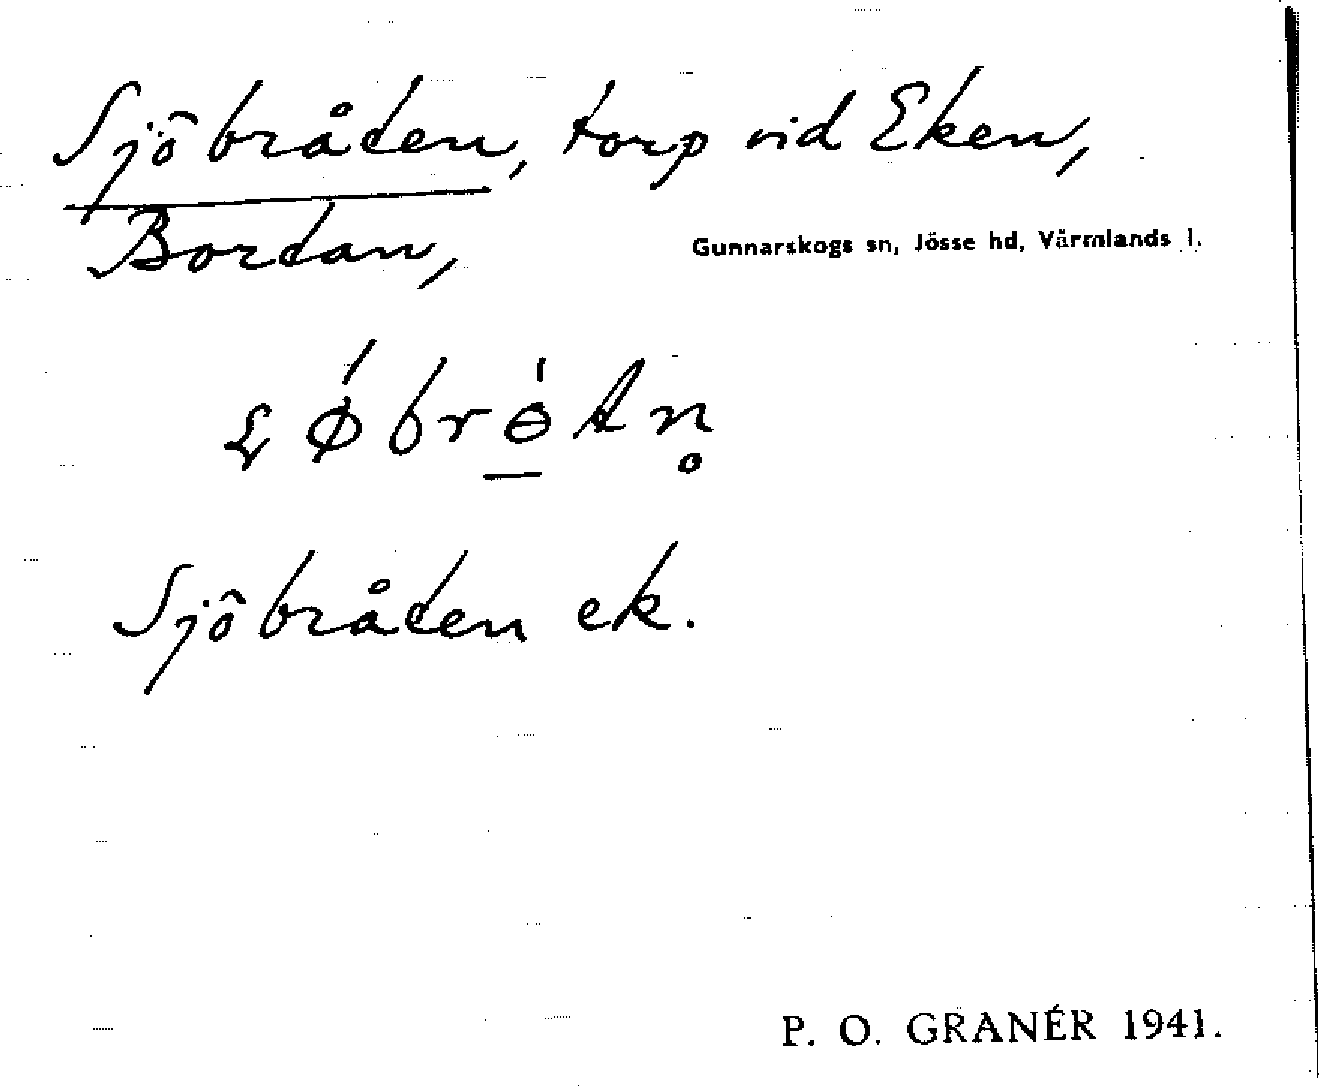 Sjöbråten, torp vid Eken,
Bortan,
Gunnarskogs sn, Jösse hd, Värmlands l.
Sjöbråten ek.
P. O. GRANÉR 1941.